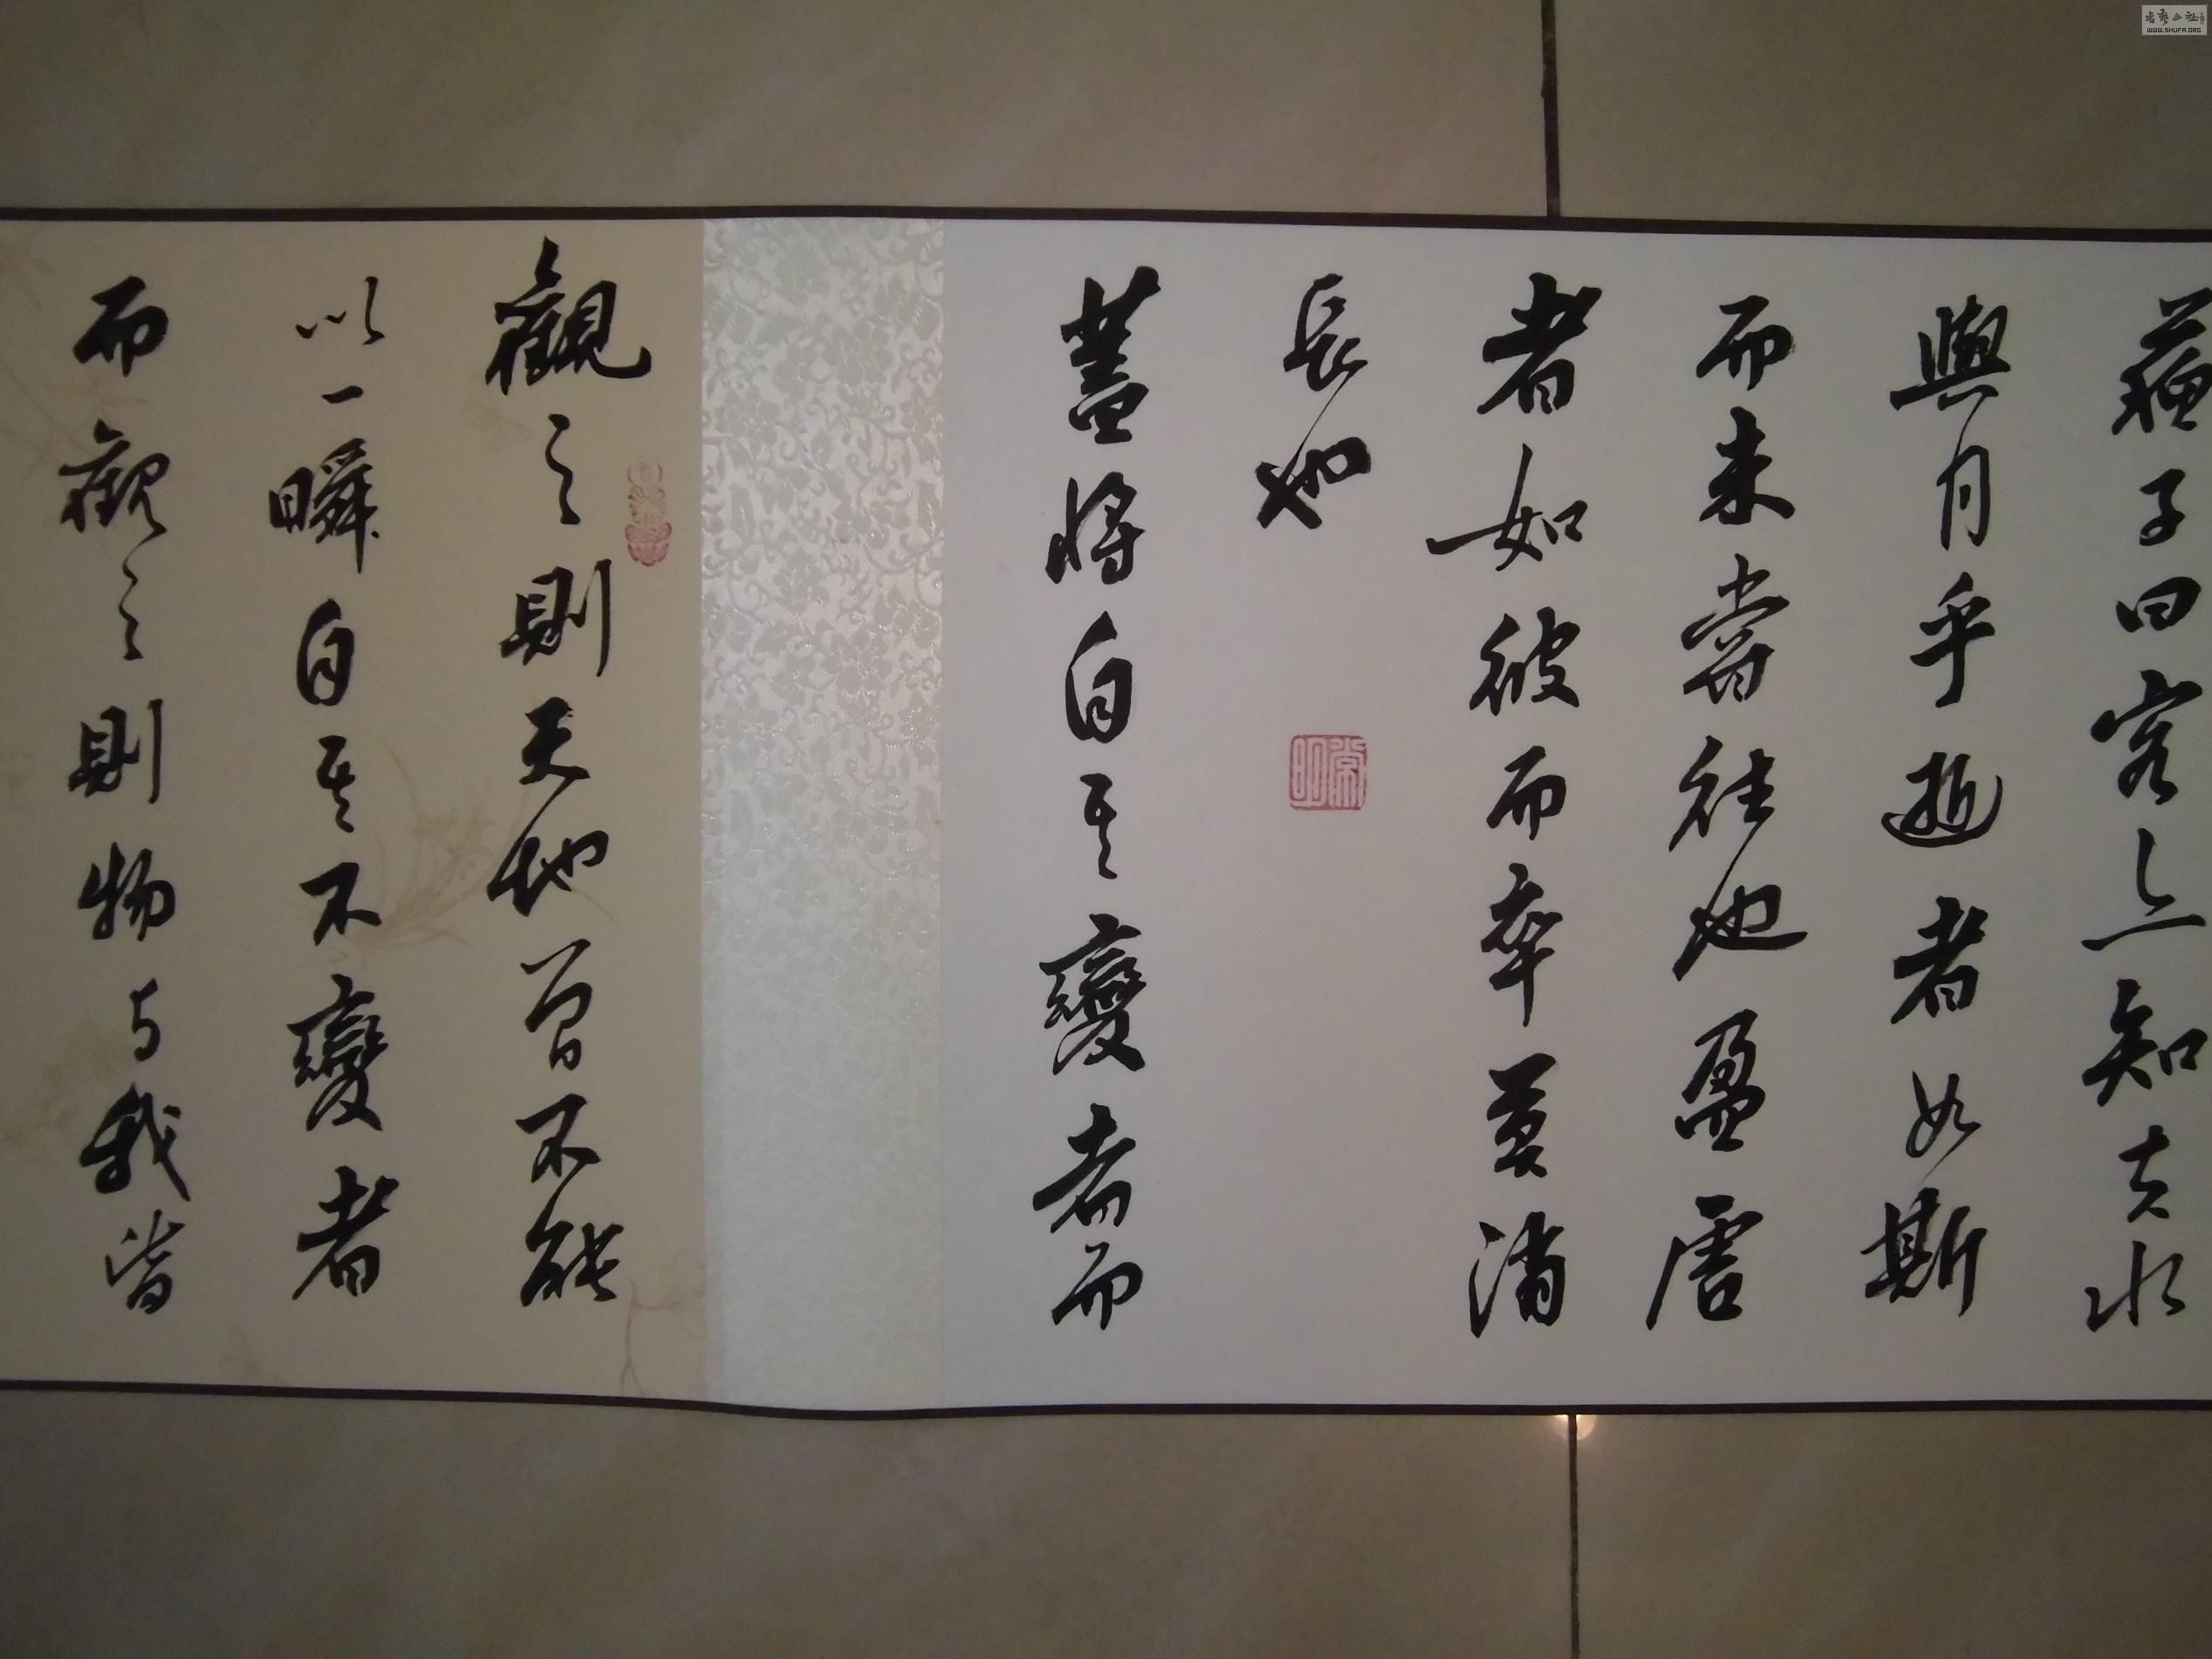 蘇子曰客亦知夫水
與月乎逝者如斯
而未嘗往也盈虚
者如彼而卒莫消
長也
蓋將自其變者而
觀之則天地曾不能
以一瞬自其不變者
而觀之則物与我皆
WWW.SHUFA.ORG